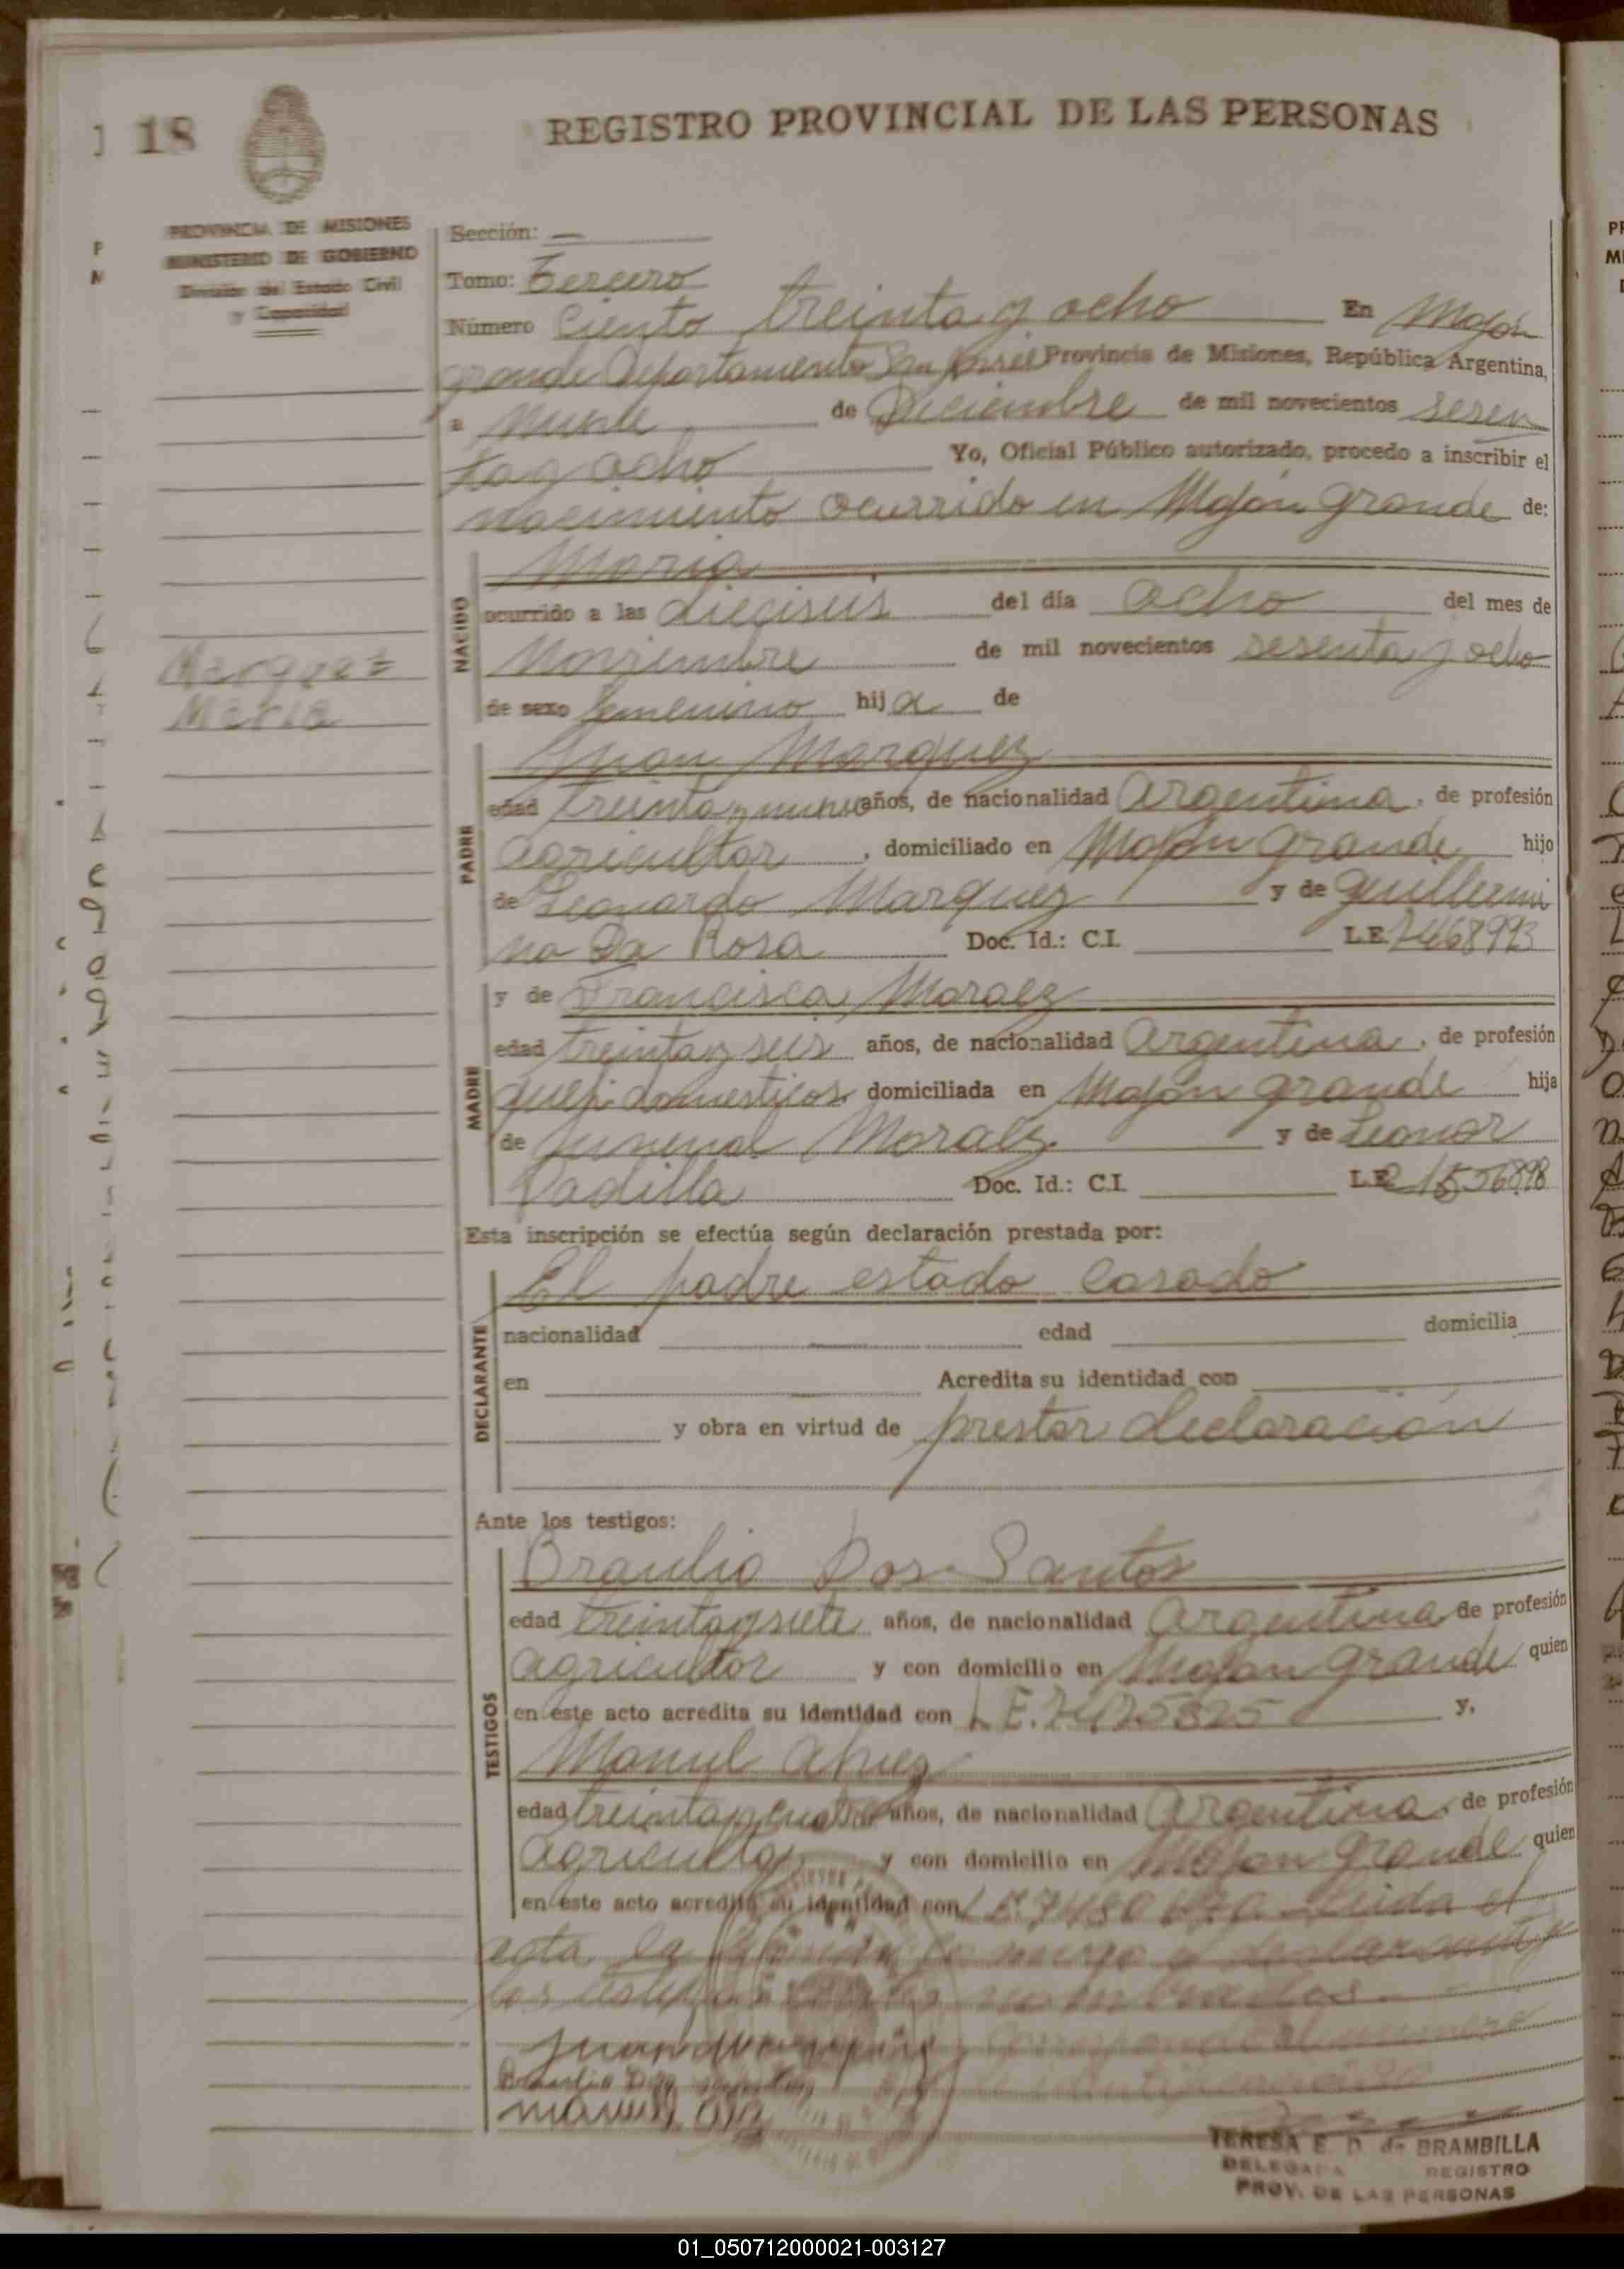 18
REGISTRO PROVINCIAL DE LAS PERSONAS
PROVINCIA DE MISIONES
MINISTERIO DE GOBIERNO
División del Estado Civil
y Capacidad
Sección: —
Tomo: Tercero
Número Ciento treinta y ocho En Mojón
grande Departamento San Javier Provincia de Misiones, República Argentina,
a nueve de Diciembre de mil novecientos sesen
ta y ocho Yo, Oficial Público autorizado, procedo a inscribir el
nacimiento ocurrido en Mojón grande de:
NACIDO
Maria
ocurrido a las dieciseis del día ocho del mes de
Noviembre de mil novecientos sesenta y ocho
de sexo femenino hija de
Marquez
Maria
PADRE
Juan Marquez
edad treinta y nueve años, de nacionalidad Argentina, de profesión
agricultor, domiciliado en Mojón grande hijo
de Leonardo Marquez y de Guillermi
na Da Rosa Doc. Id.: C.I. L.E. 7468993
MADRE
y de Francisca Moraez
edad treinta y seis años, de nacionalidad Argentina, de profesión
quep. domesticos domiciliada en Mojón grande hija
de Juvenal Moraez y de Leonor
Padilla Doc. Id.: C.I. L.E.
Esta inscripción se efectúa según declaración prestada por:
DECLARANTE
El padre estado casado
nacionalidad edad domicilia
en Acredita su identidad con
y obra en virtud de prestar declaración
Ante los testigos:
TESTIGOS
Braulio Dos Santos
edad treinta y siete años, de nacionalidad Argentina de profesión
agricultor y con domicilio en Mojon grande quien
en este acto acredita su identidad con L.E. 7475825 y,
Manuel Alvez
edad treinta y cuatro años, de nacionalidad Argentina, de profesión
agricultor y con domicilio en Mojon grande quien
en este acto acredita su identidad con L.E. Leida el
acta la firman el declarante y
los testigos nombrados
Braulio Dos Santos
TERESA E. D. de BRAMBILLA
DELEGADA REGISTRO
PROV. DE LAS PERSONAS
01_050712000021-003127